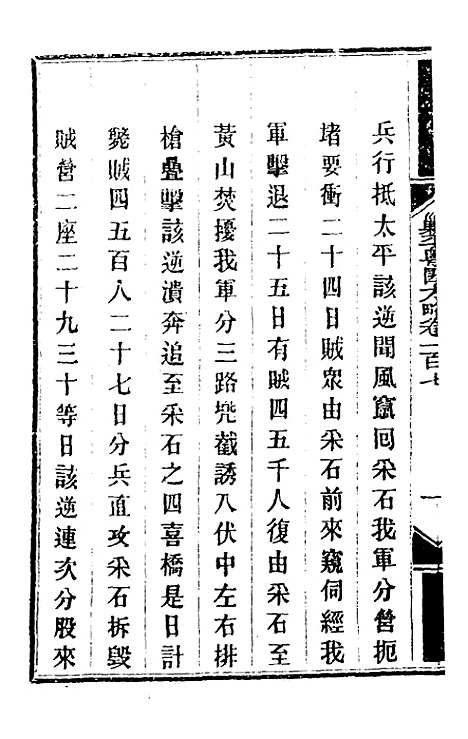 兵行抵太平該逆聞風竄囘采石我軍分營扼
堵要衝二十四日賊衆由采石前來窺伺經我
軍擊退二十五日有賊四五千人復由采石至
黃山焚擾我軍分三路兜截誘入伏中左右排
槍疊擊該逆潰奔追至采石之四喜橋是日計
斃賊四五百人二十七日分兵直攻采石拆毀
賊營二座二十九三十等日該逆連次分股來
卷一百七
一